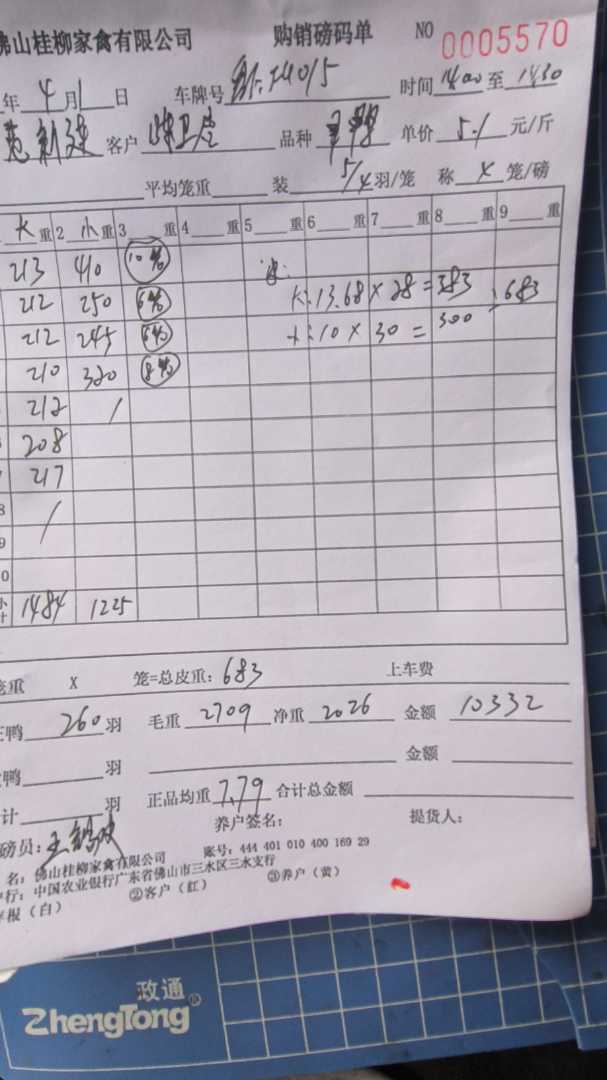 佛山桂柳家禽有限公司 购销磅码单 NO 0005570
年 4 月 1 日 车牌号 时间 1400 至 1430
客户 品种 单价 5.1 元/斤
平均笼重 装 5/4 羽/笼 称 4 笼/磅
大 重 2 小 重 3 重 4 重 5 重 6 重 7 重 8 重 9
213 410 10
212 250 6 大:13.68×28=383
212 245 6 小:10×30=300 683
210 320 8
212 /
208
217
8 /
9
0
小计 1484 1225
笼重 X 笼=总皮重: 683 上车费
正鸭 260 羽 毛重 2709 净重 2026 金额 10332
鸭 羽 金额
计 羽 正品均重 7.79 合计总金额
磅员: 养户签名: 提货人:
名: 佛山桂柳家禽有限公司 账号: 444 401 010 400 169 29
行: 中国农业银行广东省佛山市三水区三水支行
存根(白) ②客户(红) ③养户(黄)
政通®
ZhengTong